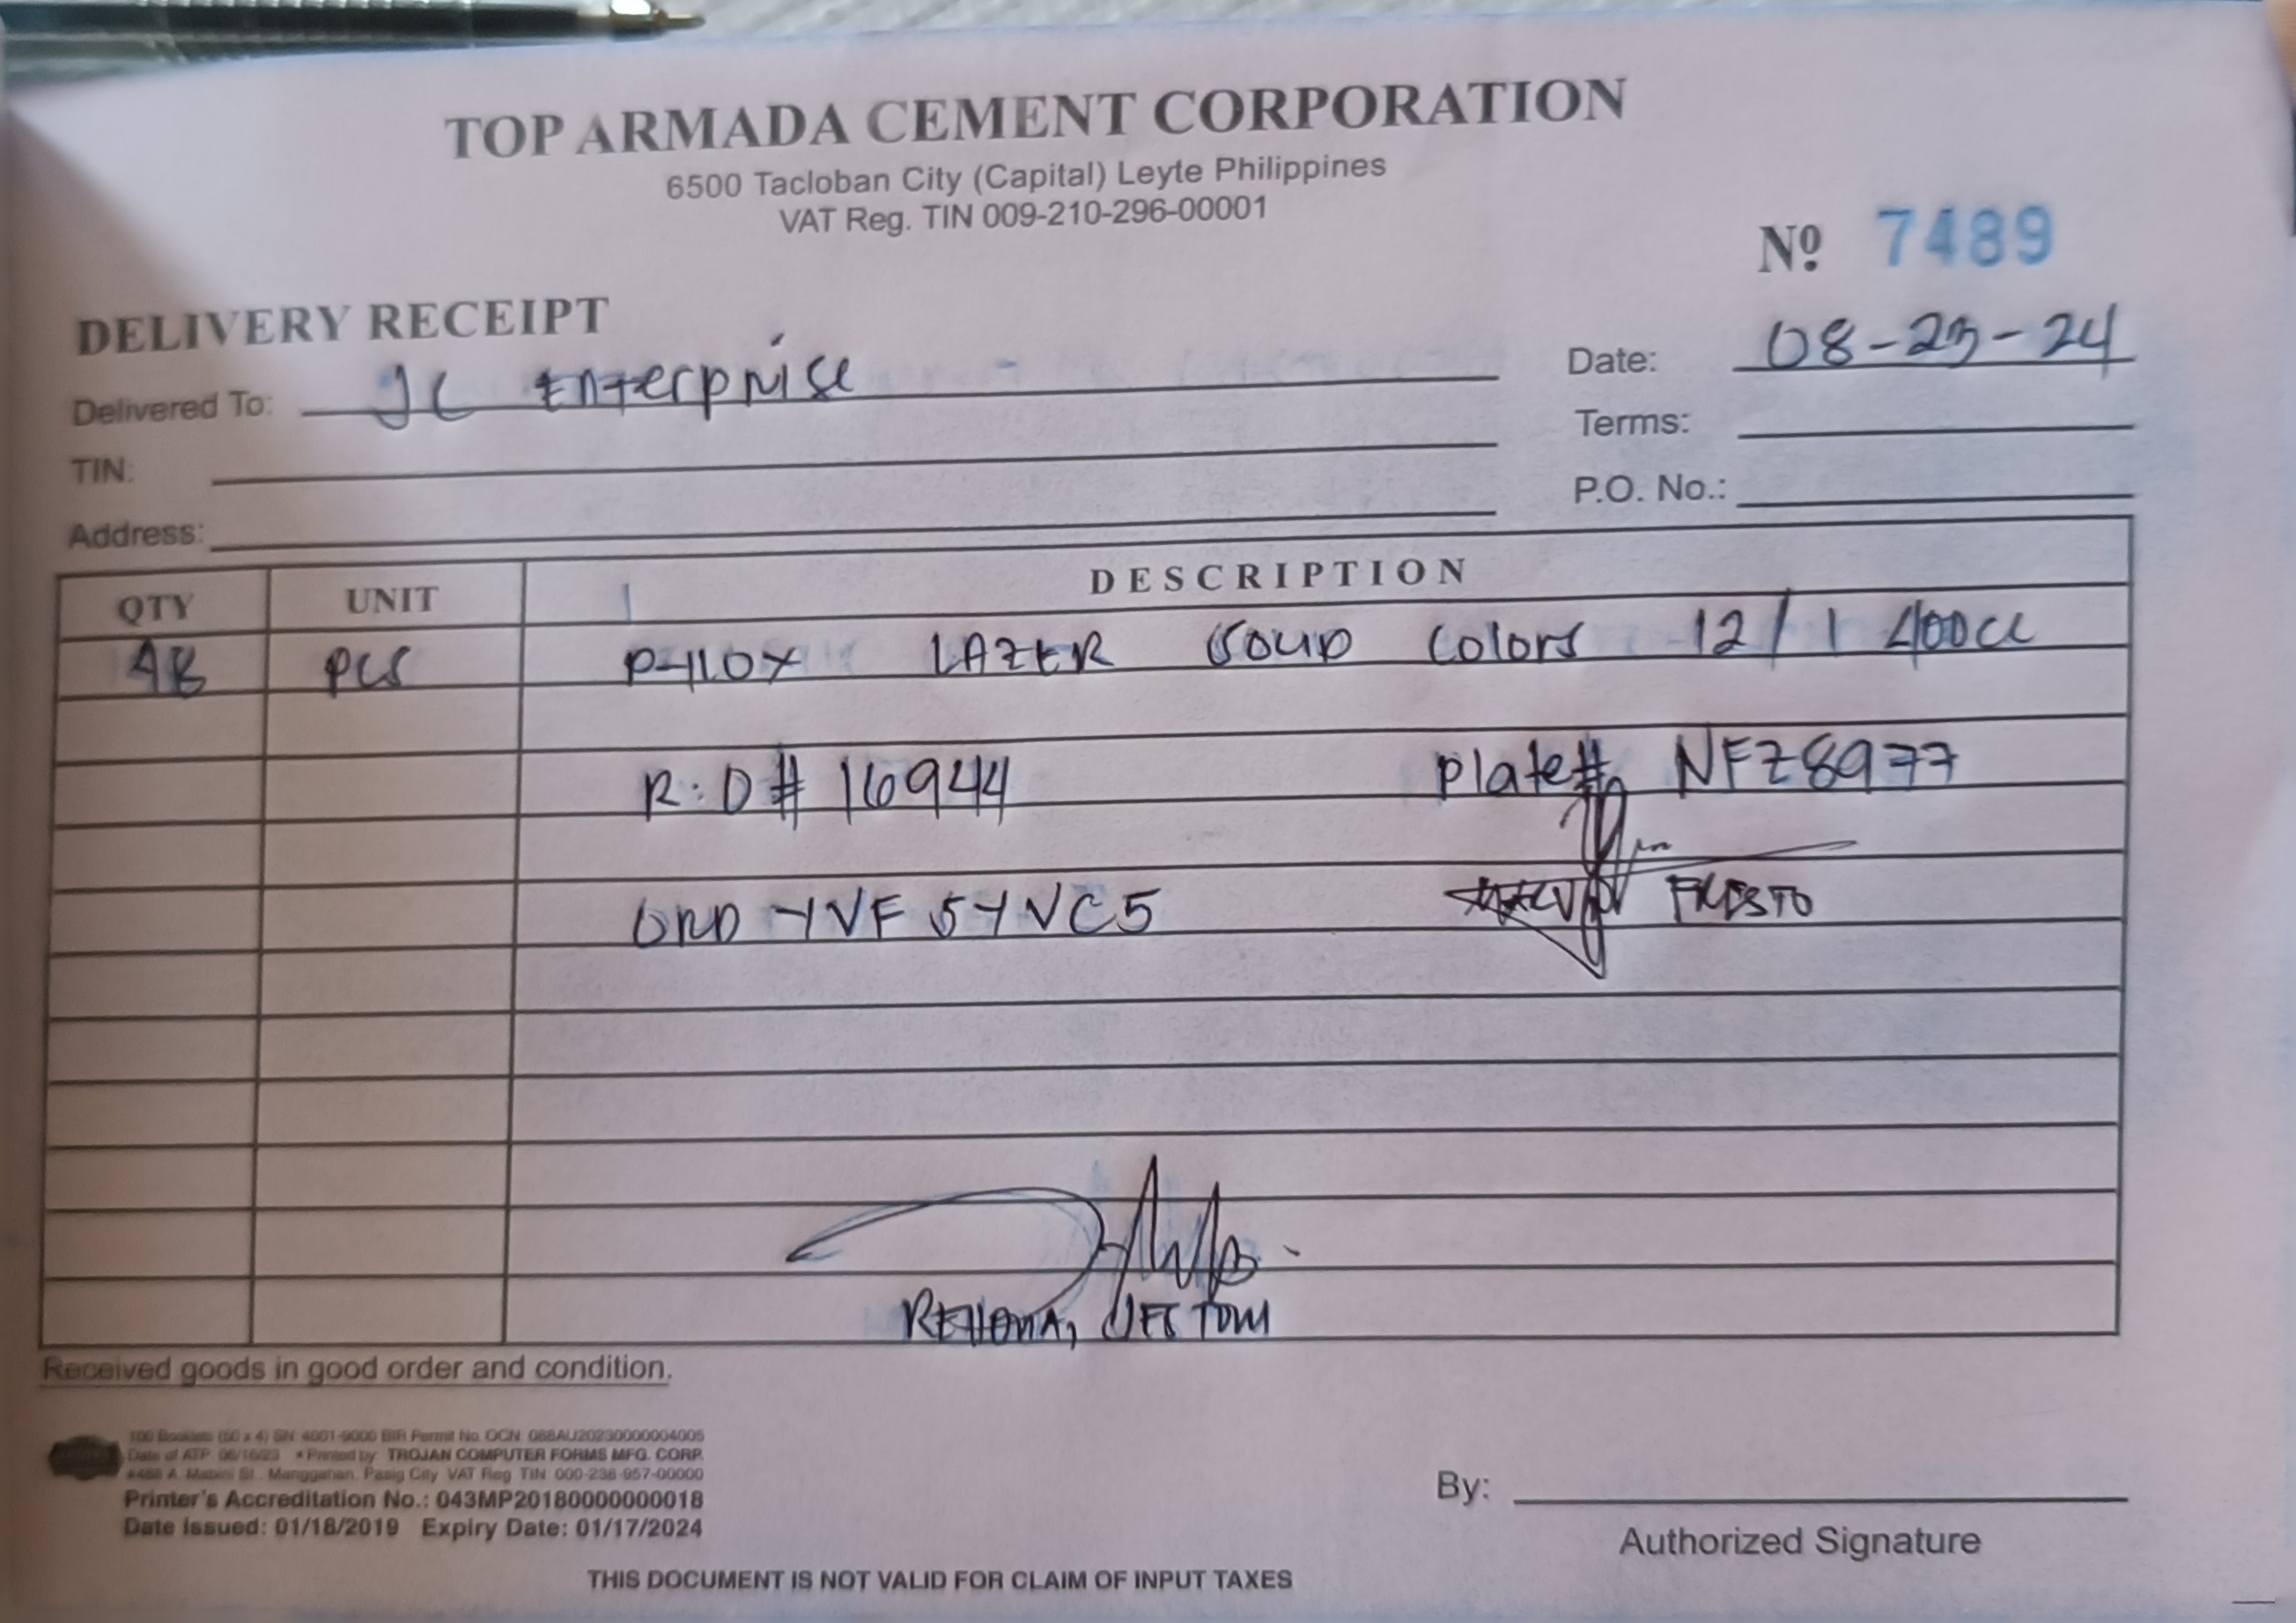 TOP ARMADA CEMENT CORPORATION
6500 Tacloban City (Capital) Leyte Philippines
VAT Reg. TIN 009-210-296-00001
Nº 7489
DELIVERY RECEIPT
Delivered To: JC Enterprise
Date: 08-23-24
TIN:
Terms:
Address:
P.O. No.:
QTY UNIT DESCRIPTION
48 PCS P-110X LAZER SOLID Colors 12/1 400CC
R.D# 16944 Plate# NFZ8977
ORD YVF 5YVC5
Received goods in good order and condition.
100 Booklets (50 x 4) SN: 4001-9000 BIR Permit No. OCN: 088AU20230000004005
Date of ATP: 06/16/23 • Printed by: TROJAN COMPUTER FORMS MFG. CORP.
#488 A. Mabini St., Manggahan, Pasig City VAT Reg. TIN: 000-238-957-00000
Printer's Accreditation No.: 043MP20180000000018
Date Issued: 01/18/2019 Expiry Date: 01/17/2024
By:
Authorized Signature
THIS DOCUMENT IS NOT VALID FOR CLAIM OF INPUT TAXES